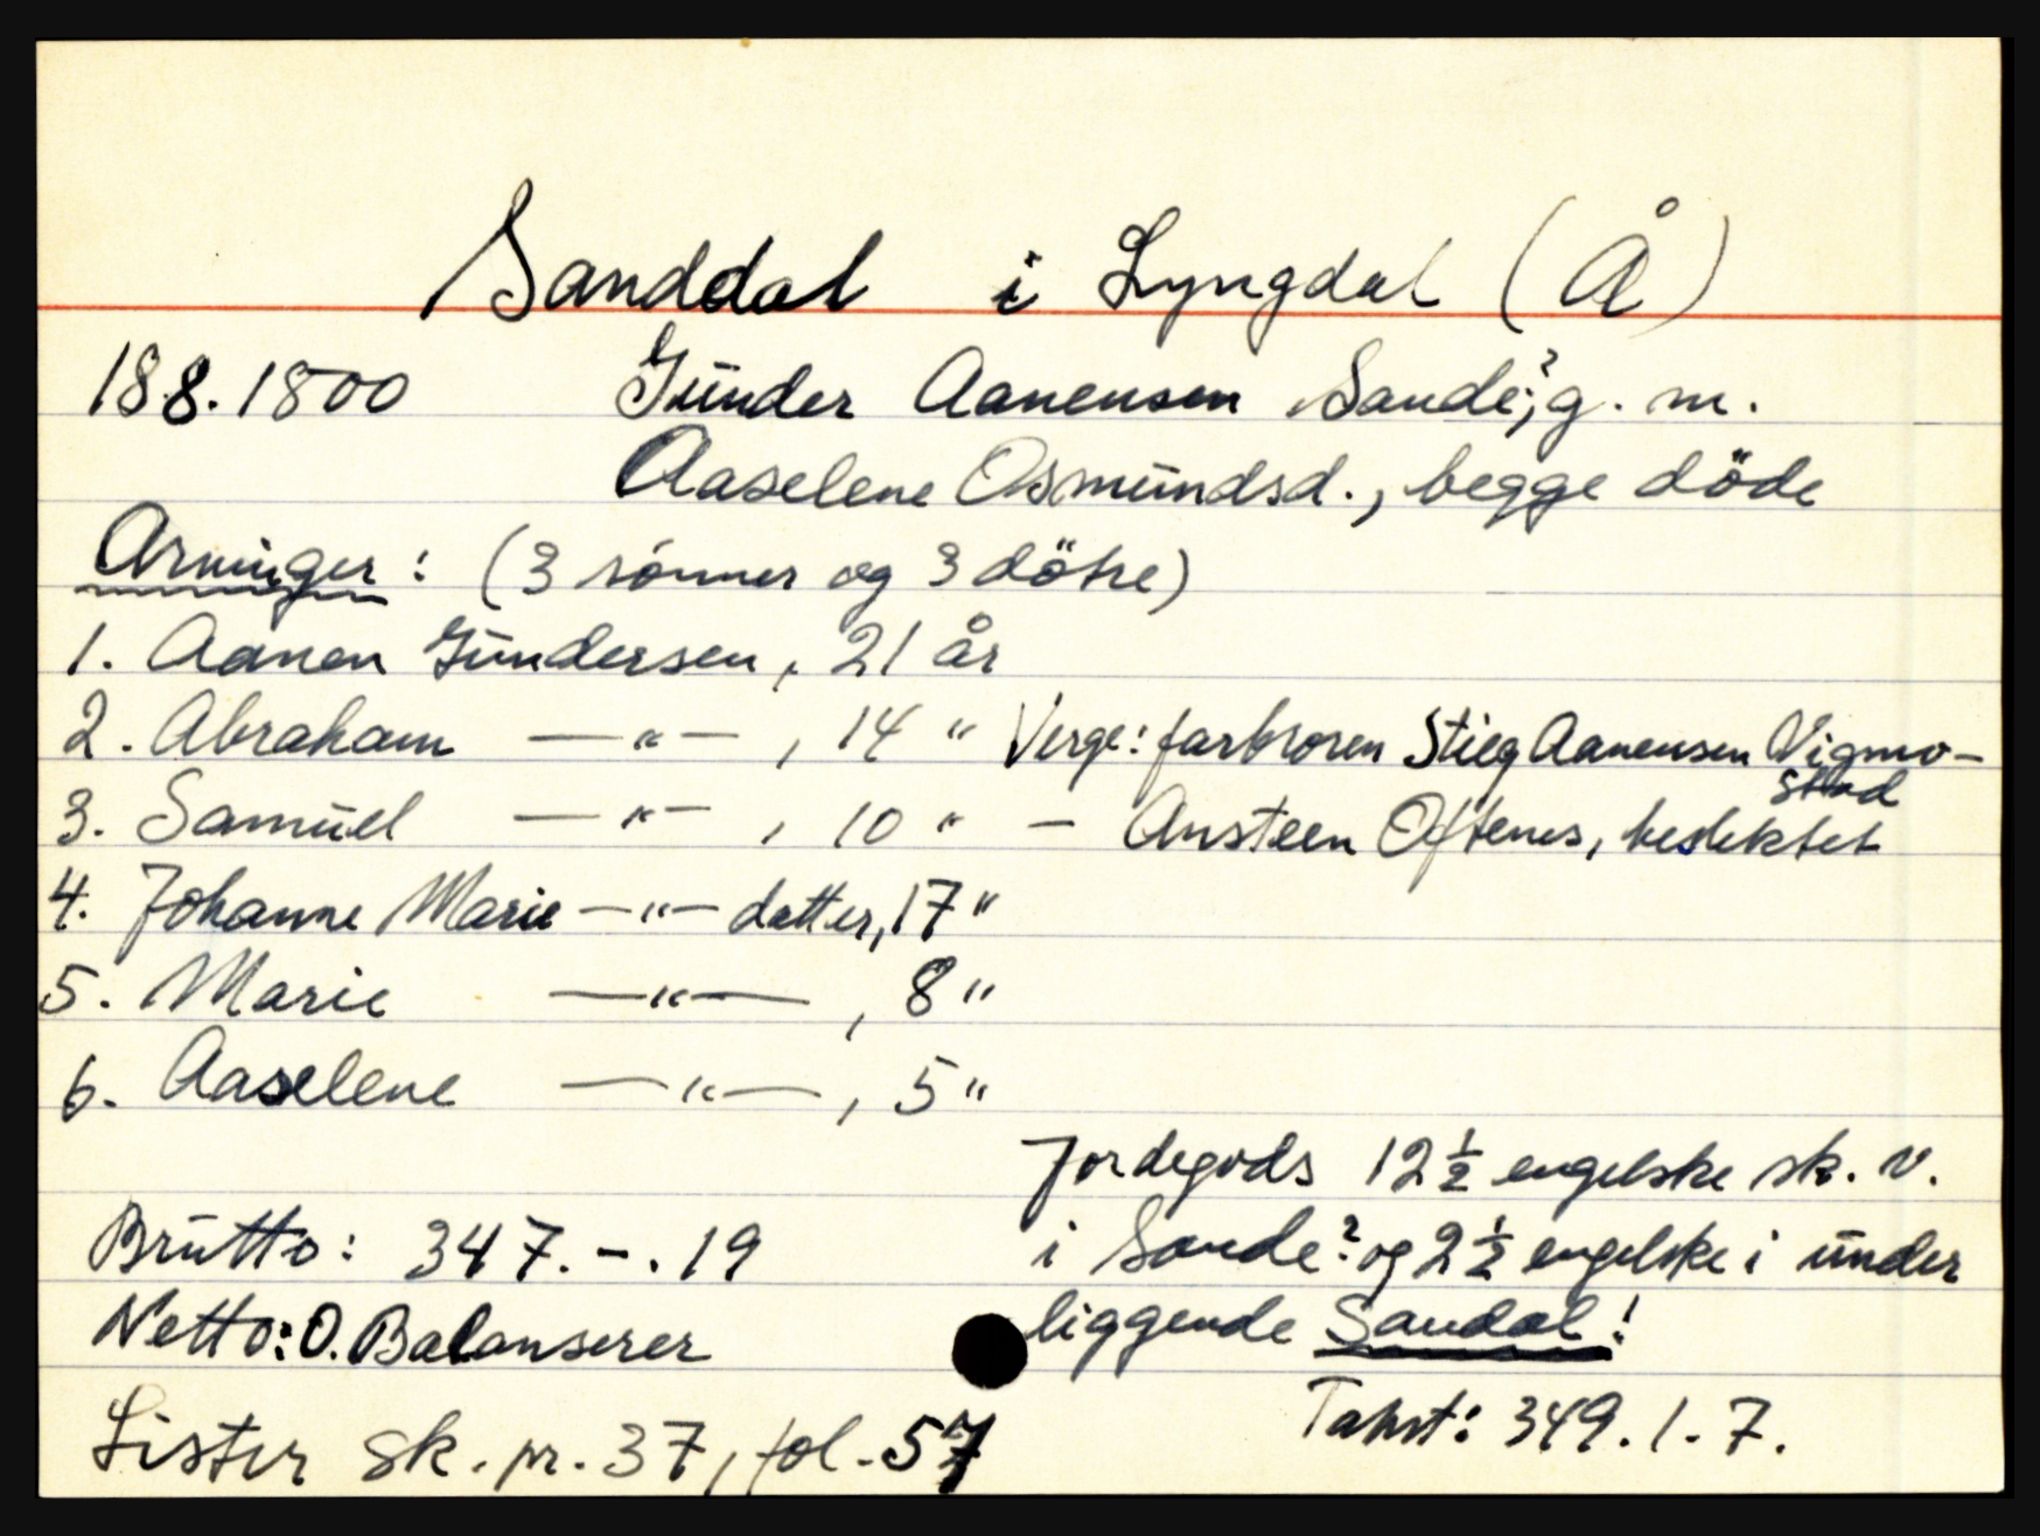 Sanddal i Lyngdal (Å)
18.8.1800 Gunder Aanensen Sande,? g. m.
Aaselene Osmundsd., begge döde
Arvinger: (3 sönner og 3 dötre)
1. Aanen Gundersen, 21 år
2. Abraham —"—, 14 " Verge: farbroren Stieg Aanensen Vigmo-
stad
3. Samuel —"—, 10 " — Ansteen Oftenes, beslektet
4. Johanne Marie —"— datter, 17 "
5. Marie —"—, 8 "
6. Aaselene —"—, 5 "
Jordegods 12 1/2 engelske sk. v.
Brutto: 347.-.19 i Sande? og 2 1/2 engelske i under
Netto: 0. Balanserer liggende Sandal!
Takst: 349.1.7.
Lister sk. pr. 37, fol. 57